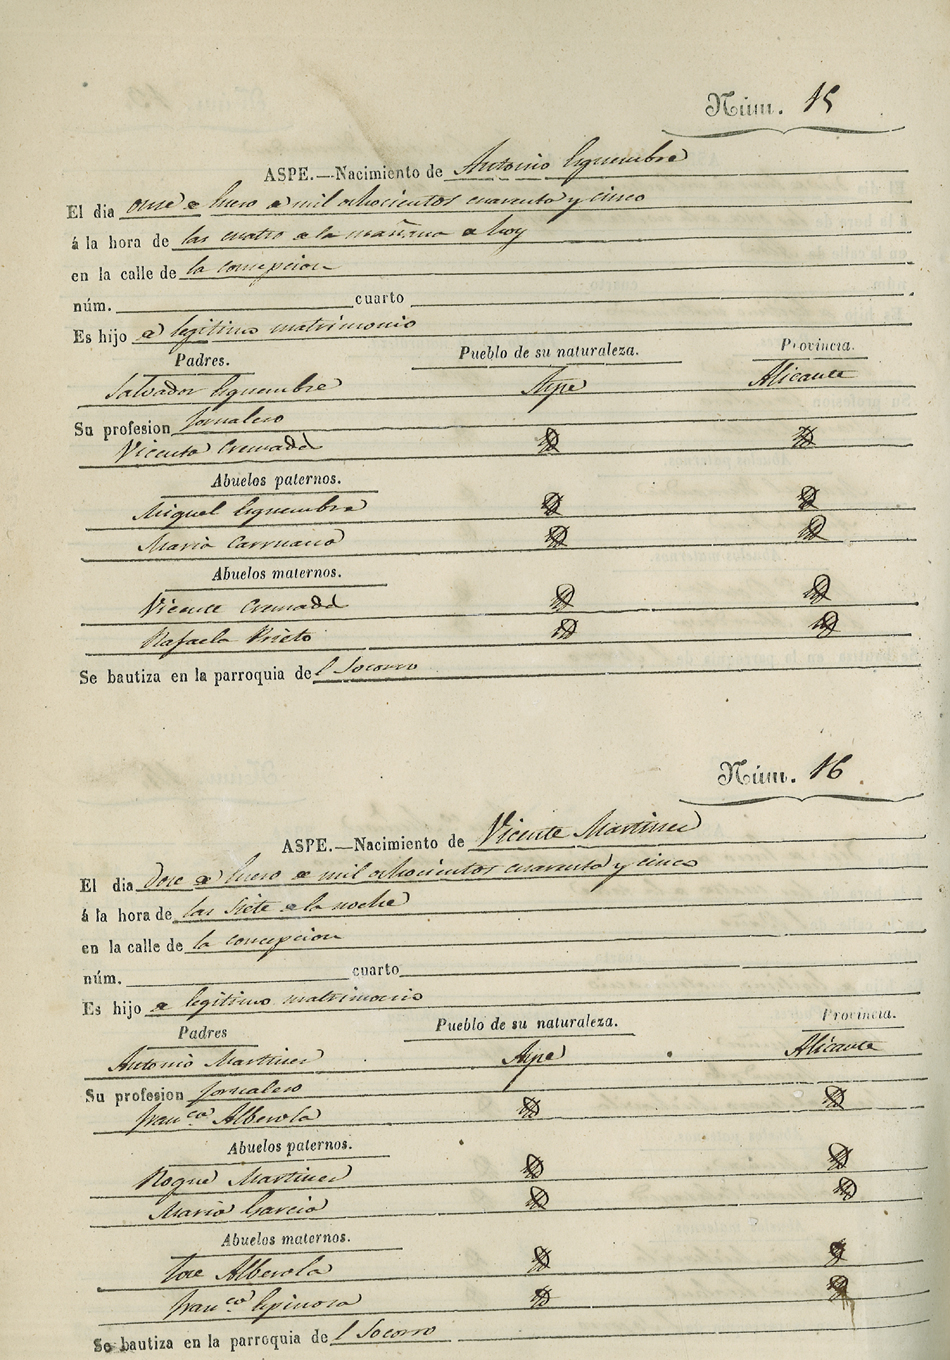 Núm. 15
ASPE.—Nacimiento de Antonio
El dia once de Enero de mil ochocientos cuarenta y cinco
á la hora de las cuatro de la mañana de hoy
en la calle de la concepcion
núm. cuarto
Es hijo de legitimo matrimonio
Padres. Pueblo de su naturaleza. Provincia.
Salvador Aspe Alicante
Su profesion Jornalero
Vicenta Cremades
Abuelos paternos.
Miguel
Maria
Abuelos maternos.
Vicente Cremades
Rafaela Prieto
Se bautiza en la parroquia del Socorro
Núm. 16
ASPE.—Nacimiento de Vicente Martinez
El dia doce de Enero de mil ochocientos cuarenta y cinco
á la hora de las siete de la noche
en la calle de la concepcion
núm. cuarto
Es hijo de legitimo matrimonio
Padres Pueblo de su naturaleza. Provincia.
Antonio Martinez Aspe Alicante
Su profesion Jornalero
Franca Alberola
Abuelos paternos.
Roque Martinez
Maria Garcia
Abuelos maternos.
Jose Alberola
Franca Espinosa
Se bautiza en la parroquia del Socorro